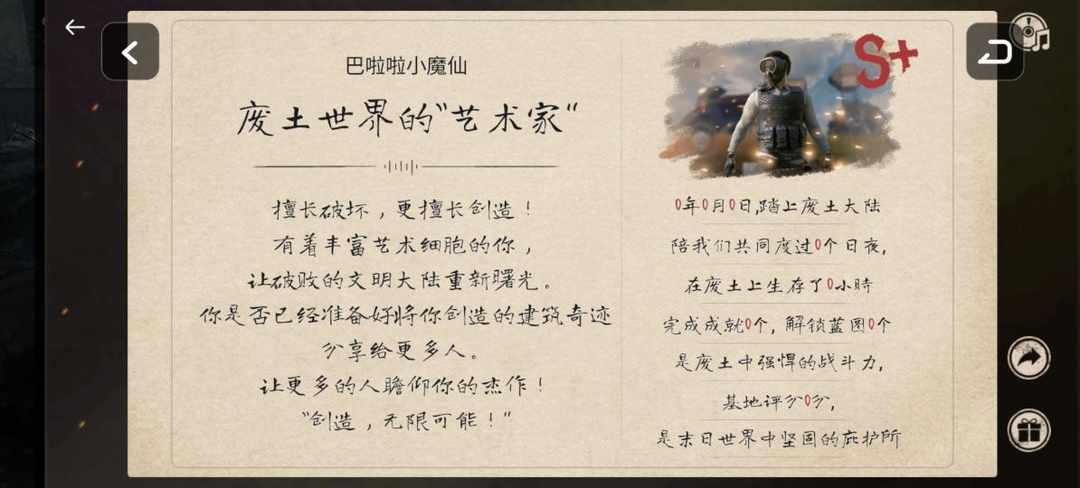 巴啦啦小魔仙
废土世界的"艺术家"
擅长破坏，更擅长创造！
有着丰富艺术细胞的你，
让破败的文明大陆重新曙光。
你是否已经准备好将你创造的建筑奇迹
分享给更多人。
让更多的人瞻仰你的杰作！
"创造，无限可能！"
S+
0年0月0日,踏上废土大陆
陪我们共同度过0个日夜,
在废土上生存了0小时
完成成就0个，解锁蓝图0个
是废土中强悍的战斗力,
基地评分0分,
是末日世界中坚固的庇护所